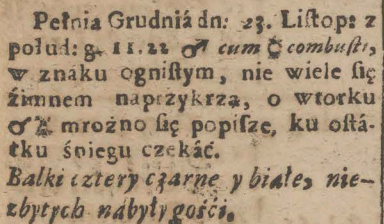 Pełnia Grudniá dn: 23. Liſtop: z
połud: g. 11.22 ♂ cum combuſti,
w znaku ogniſtym, nie wiele ſię
źimnem naprzykrza, o wtorku
♂ mroźno ſię popiſze, ku oſtá-
tku śniegu czekáć.
Balki cztery czarne y białe, nie-
zbytych nábyły gośći.